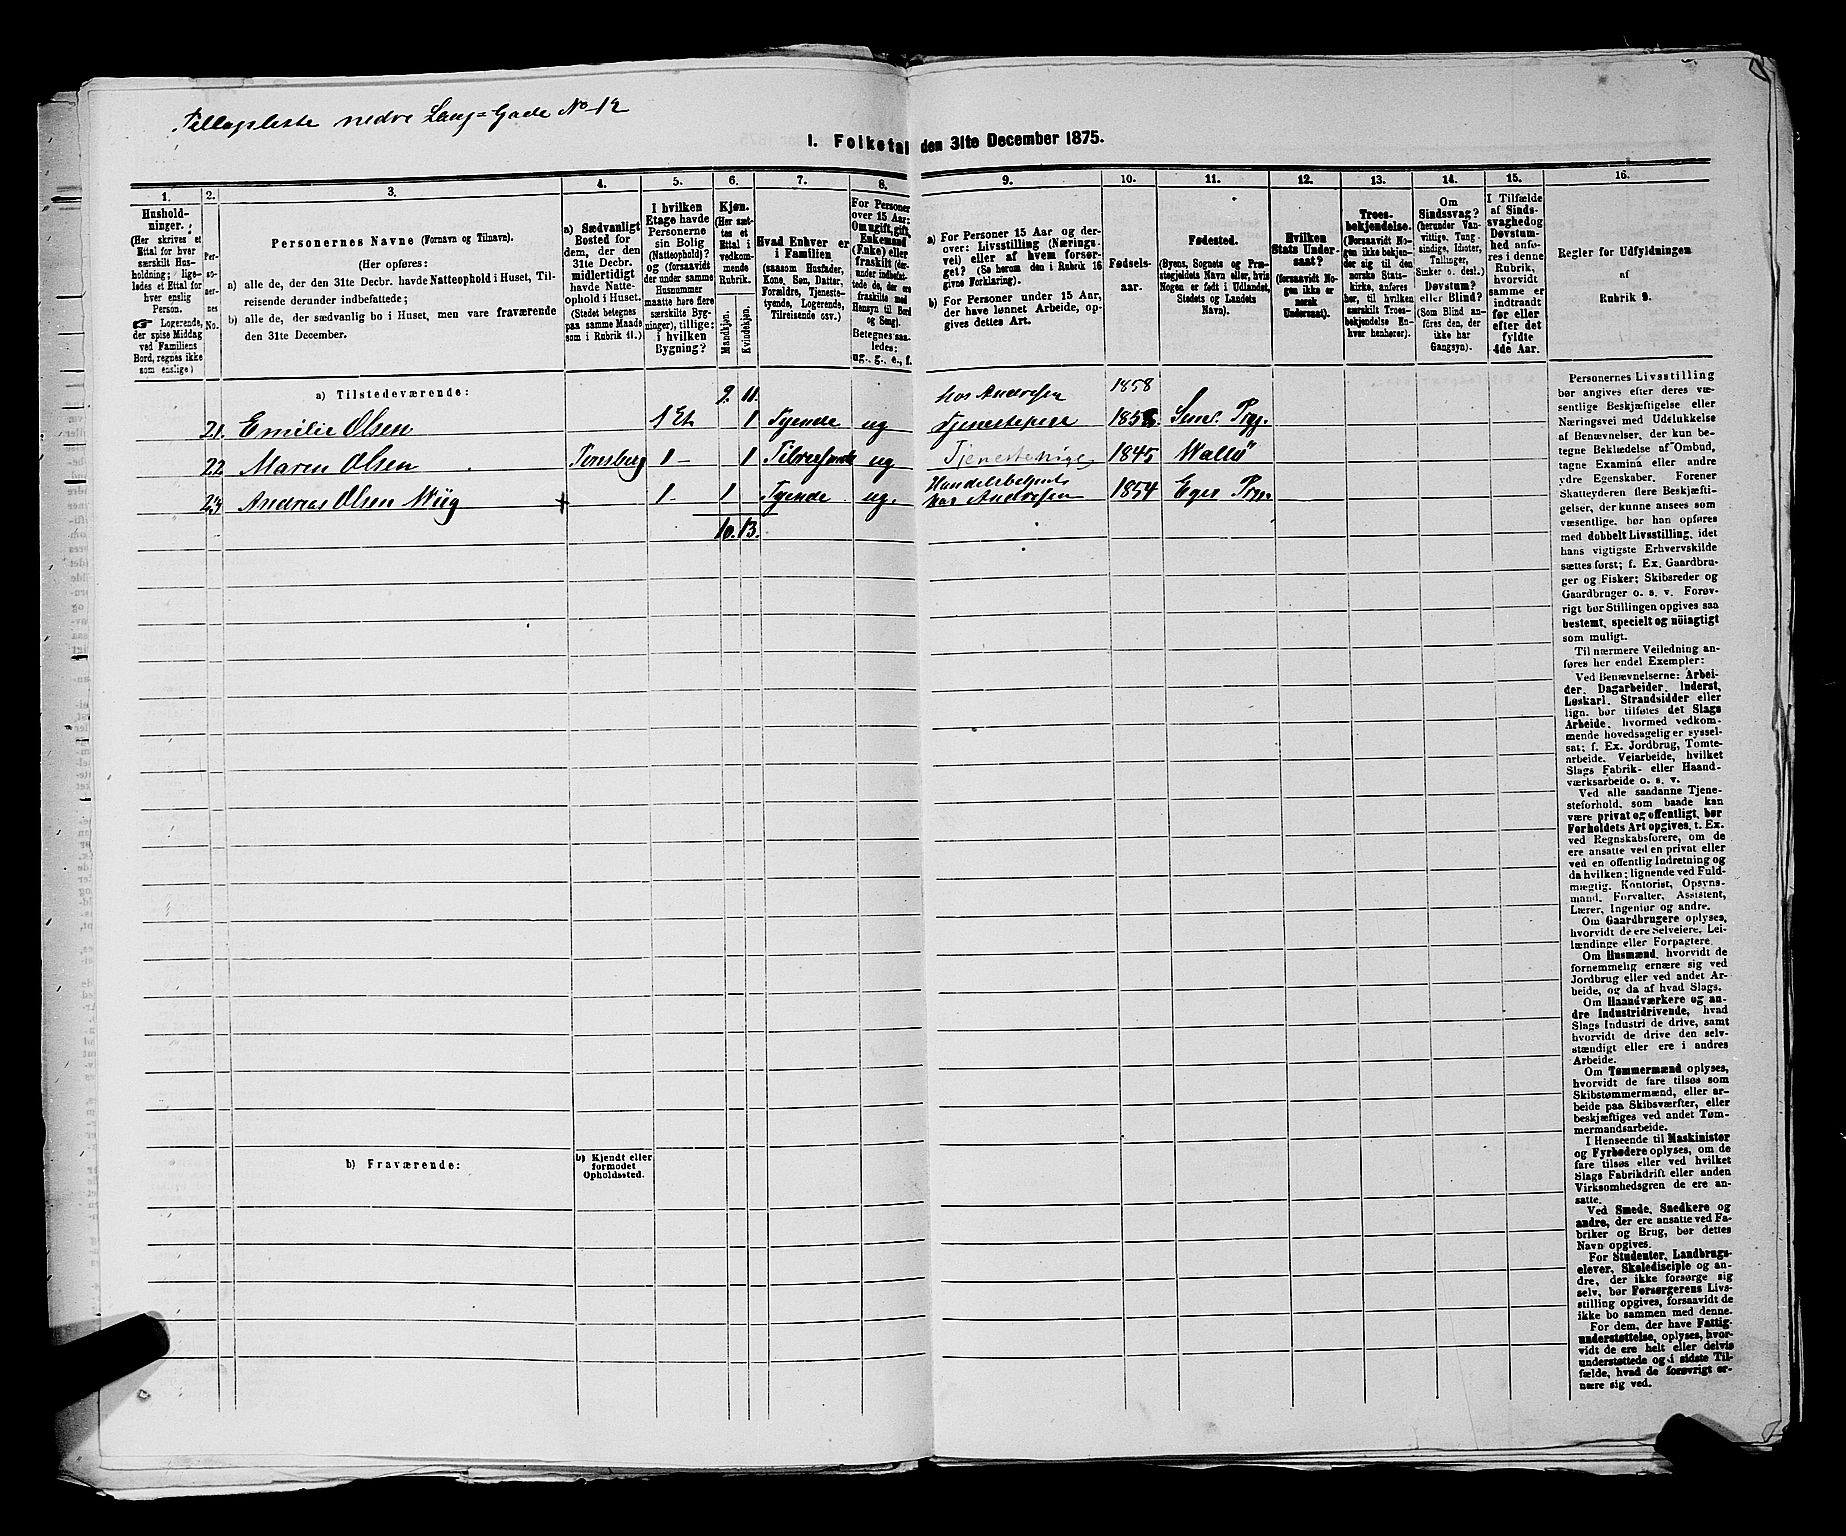 Tillægsliste nedre Lang=Gade No 12
I. Folketal den 31te December 1875.
1. 2. 3. 4. 5. 6. 7. 8. 9. 10. 11. 12. 13. 14. 15. 16.
Hushold-
ninger.
(Her skrives et
Ettal for hver
særskilt Hus-
holdning; lige-
ledes et Ettal for
hver enslig
Person.
☞ Logerende,
der spise Middag
ved Familiens
Bord, regnes ikke
som enslige)
Per-
so-
ner-
nes
No.
Personernes Navne (Fornavn og Tilnavn).
(Her opføres:
a) alle de, der den 31te Decbr. havde Natteophold i Huset, Til-
reisende derunder indbefattede;
b) alle de, der sædvanlig bo i Huset, men vare fraværende
den 31te December.
a) Sædvanligt
Bosted for
dem, der den
31te Decbr.
midlertidigt
havde Natte-
ophold i Huset.
(Stedet betegnes
paa samme Maade
som i Rubrik 11.)
I hvilken
Etage havde
Personerne
sin Bolig
(Natteophold)?
og (forsaavidt
der under samme
Husnummer
maatte høre flere
særskilte Byg-
ninger), tillige:
i hvilken
Bygning?
Kjøn.
(Her sæt-
tes et
Ettal i
vedkom-
mende
Rubrik.
Mandkjøn.
Kvindekjøn.
Hvad Enhver er
i Familien
(saasom Husfader,
Kone, Søn, Datter,
Forældre, Tjeneste-
tyende, Logerende,
Tilreisende osv.)
For Personer
over 15 Aar:
Om ugift, gift,
Enkemand
(Enke) eller
fraskilt (der-
under indbefat-
tede de, der ere
fraskilte med
Hensyn til Bord
og Seng).
Betegnes saa-
ledes:
ug., g., e., f.
a) For Personer 15 Aar og der-
over: Livsstilling (Nærings-
vei) eller af hvem forsør-
get? (Se herom den i Rubrik 16
givne Forklaring).
b) For Personer under 15 Aar,
der have lønnet Arbeide, op-
gives dettes Art.
Fødsels-
aar.
Fødested.
(Byens, Sognets og Præ-
stegjeldets Navn eller, hvis
Nogen er født i Udlandet,
Stedets og Landets
Navn).
Hvilken
Stats Under-
saat?
(forsaavidt No-
gen ikke er
norsk
Undersaat).
Troes-
bekjendelse.
(Forsaavidt No-
gen ikke bekjen-
der sig til den
norske Stats-
kirke, anføres
her, til hvilken
særskilt Troes-
bekjendelse En-
hver henhører).
Om
Sindssvag?
(herunder Van-
vittige, Tung-
sindige, Idioter,
Tullinger,
Sinker o. desl.)
Døvstum?
eller Blind?
(Som Blind an-
føres den, der
ikke har
Gangsyn).
I Tilfælde
af Sinds-
svaghed og
Døvstum-
hed anfø-
res i denne
Rubrik,
hvorvidt
samme er
indtraadt
før eller
efter det
fyldte
4de Aar.
Regler for Udfyldningen
af
Rubrik 9.
a) Tilstedeværende:
9. 11.
hos Andresen 1858
21. Emilie Olsen 1 Et. 1 Tyende ug Tjenestepige
22 Maren Olsen Tønsberg 1 – 1 Tilreisende ug Tjenestepige 1845 Wallø
Handelsbetjent
23 Andreas Olsen Wiig + 1 – 1 Tyende ug. hos Andresen 1854 Eger Prgj.
10. 13.
b) Fraværende:
b) Kjendt eller
formodet
Opholdssted.
Personernes Livsstilling
bør angives efter deres væ-
sentlige Beskjæftigelse eller
Næringsvei med Udelukkelse
af Benævnelser, der kun be-
tegne Beklædelse af Ombud,
tagne Examina eller andre
ydre Egenskaber. Forener
Skatteyderen flere Beskjæfti-
gelser, der kunne ansees som
væsentlige, bør han opføres
med dobbelt Livsstilling, idet
hans vigtigste Erhvervskilde
sættes først; f. Ex. Gaardbru-
ger og Fisker; Skibsreder og
Gaardbruger o. s. v. Forøv-
rigt bør Stillingen opgives saa
bestemt, specielt og nöiagtigt
som muligt.
Til nærmere Veiledning an-
føres her endel Exempler:
Ved Benævnelserne: Arbei-
der, Dagarbeider, Inderst,
Løskarl, Strandsidder eller
lign. bør tilføies det Slags
Arbeide, hvormed vedkom-
mende hovedsagelig er syssel-
sat; f. Ex. Jordbrug, Tomte-
arbeide, Veiarbeide, hvilket
Slags Fabrik- eller Haand-
værksarbeide o. s. v.
Ved alle saadanne Tjene-
steforhold, som baade kan
være privat og offentligt, bør
Forholdets Art opgives, t. Ex.
ved Regnskabsførere, om de
ere ansatte ved en privat eller
ved en offentlig Indretning og
da hvilken; lignende ved Fuld-
mægtig, Kontorist, Opsyns-
mand, Forvalter, Assistent,
Lærer, Ingeniør og andre.
Om Gaardbrugere oplyses,
hvorvidt de ere Selveiere, Lei-
lændinge eller Forpagtere.
Om Husmænd, hvorvidt de
fornemmelig ernære sig ved
Jordbrug eller ved andet Ar-
beide, og da af hvad Slags.
Om Haandværkere og an-
dre Industridrivende, hvad
Slags Industri de drive, samt
hvorvidt de drive den selv-
stændigt eller ere i andres
Arbeide.
Om Tømmermænd oplyses,
hvorvidt de fare tilsøs som
Skibstømmermænd, eller ar-
beide paa Skibsværfter, eller
beskjæftiges ved andet Tøm-
mermandsarbeide.
I Henseende til Maskinister
og Fyrbødere oplyses, om de
fare tilsøs eller ved hvilket
Slags Fabrikdrift eller anden
Virksomhedsgren de ere an-
satte.
Ved Smede, Snedkere og
andre, der ere ansatte ved Fa-
briker og Brug, bør dettes
Navn opgives.
For Studenter, Landbrugs-
elever, Skoledisciple og an-
dre, der ikke forsørge sig
selv, bør Forsørgerens Livs-
stilling opgives, forsaavidt de
ikke bo sammen med denne.
For dem, der have Fattig-
understøttelse, oplyses, hvor-
vidt de ere helt eller delvis
understøttede og i sidste Til-
fælde, hvad de forøvrigt er-
nære sig ved.